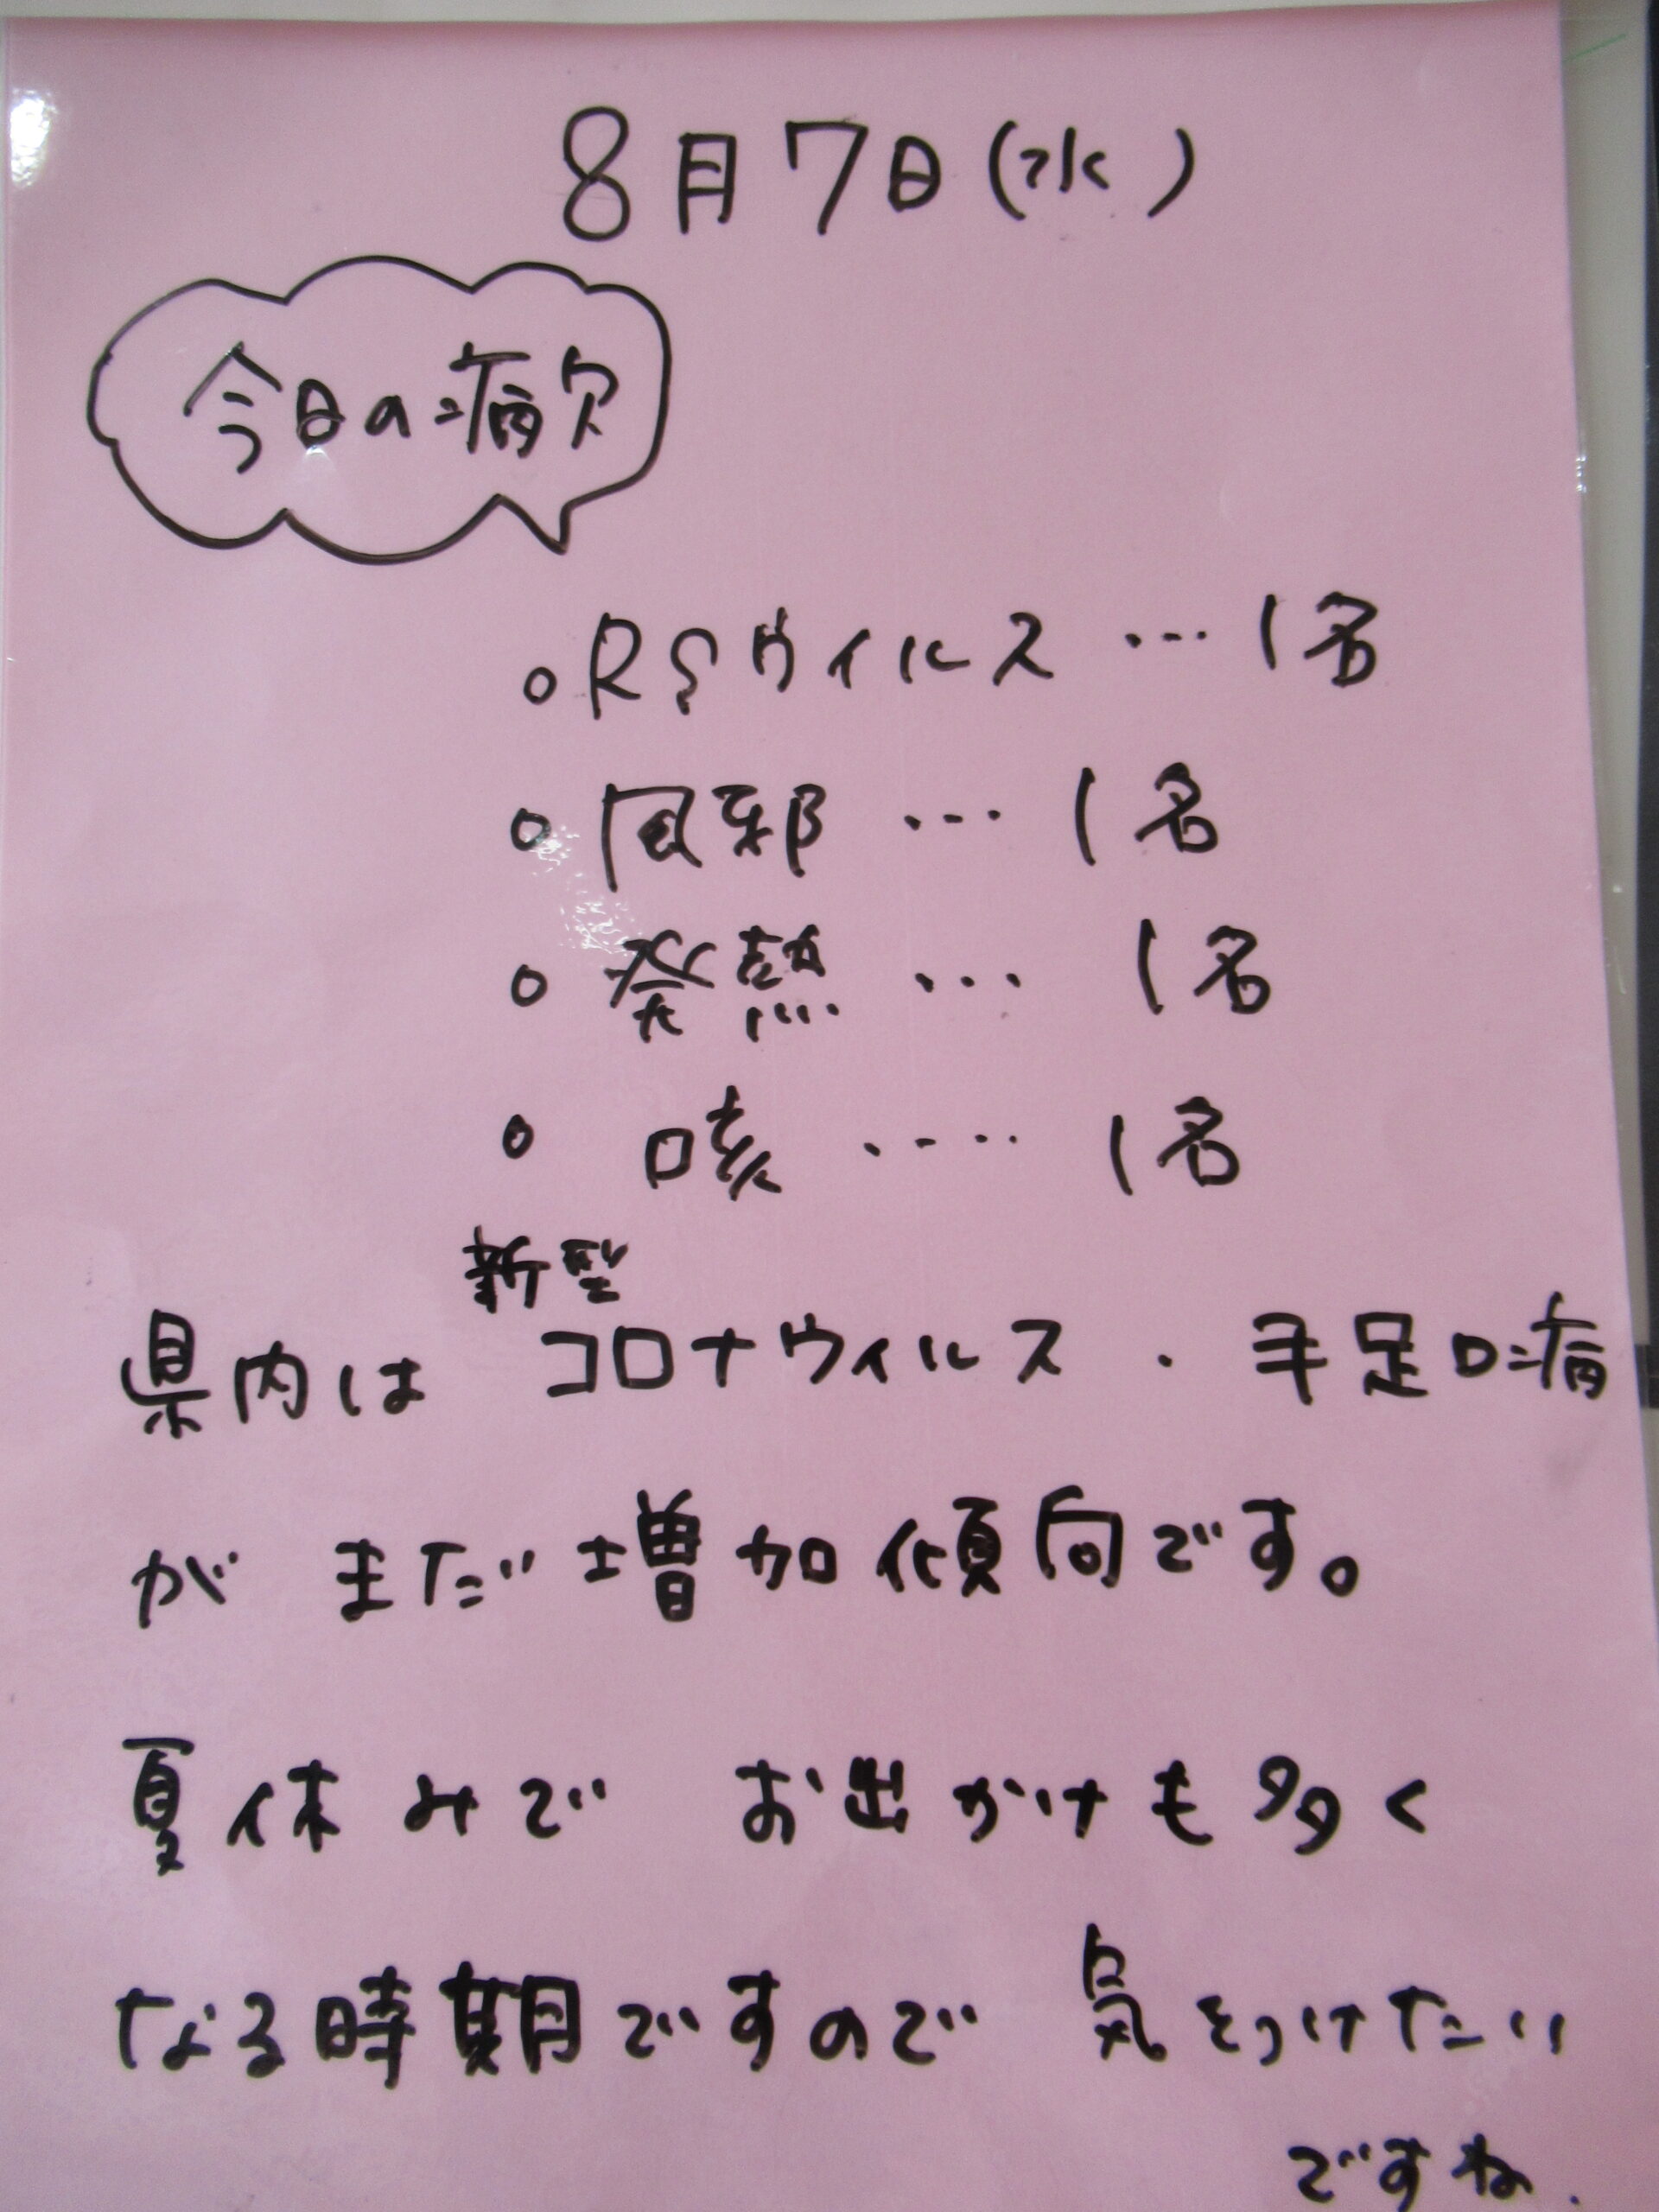 8月7日(水)
今日の病欠
○RSウイルス…1名
○風邪…1名
○発熱…1名
○咳‥‥1名
新型
県内はコロナウィルス・手足口病
がまだ増加傾向です。
夏休みでお出かけも多く
なる時期ですので気をつけたい
ですね.